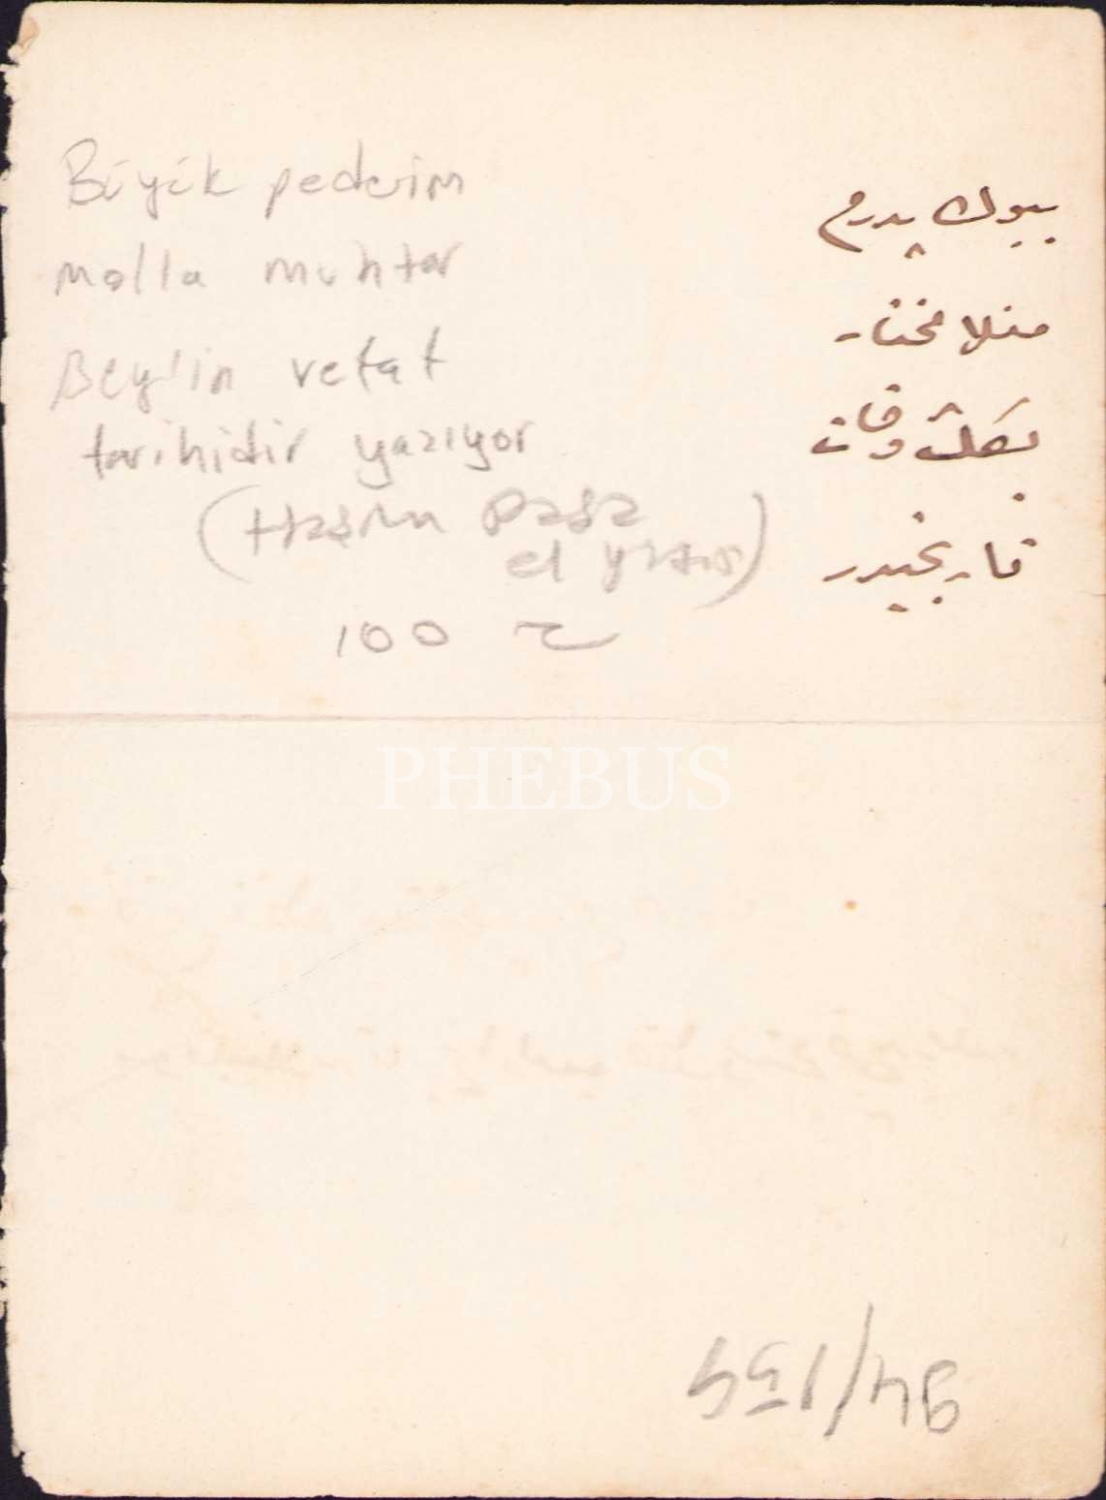 Büyük pederim
molla muhtar
Bey'in vefat
tarihidir yazıyor
(Haşim Paşa
el yazısı)
100
بيوك پدرم
منلا مختار
بكك وفات
تاريخيدر
PHEBUS
94/1